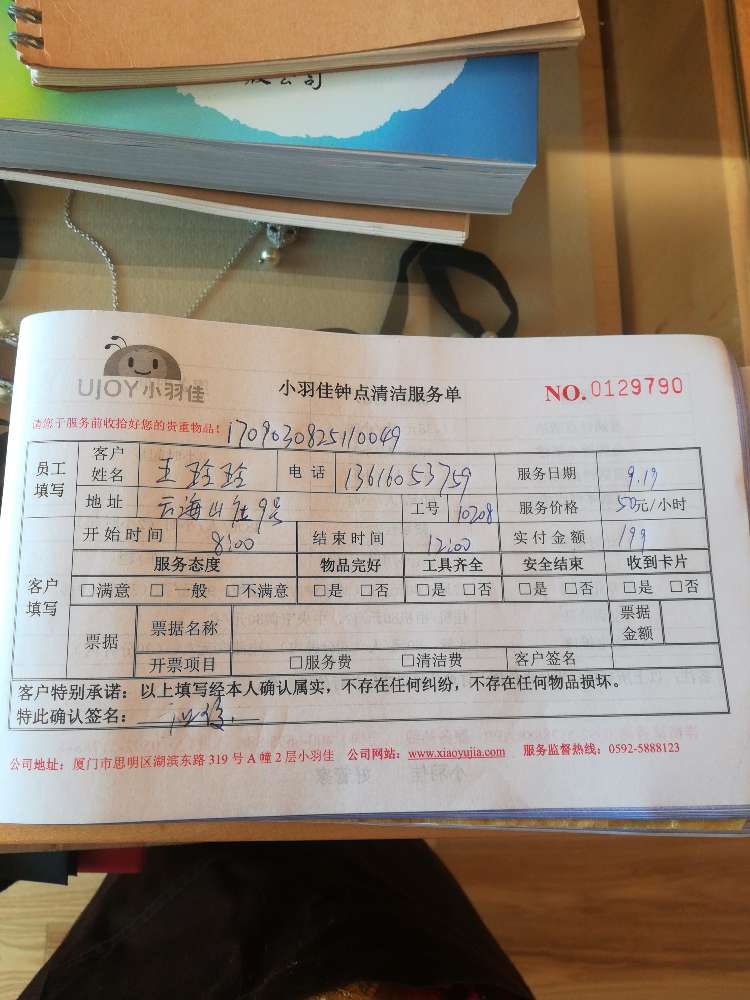 股公司
UJOY小羽佳
小羽佳钟点清洁服务单
NO.0129790
请您于服务前收拾好您的贵重物品！
1709030825110049
员工填写 客户姓名 王玲玲 电话 13616053759 服务日期 9.19
地址 云海山庄9号 工号 10208 服务价格 50元/小时
开始时间 8:00 结束时间 12:00 实付金额 199
客户填写 服务态度 物品完好 工具齐全 安全结束 收到卡片
□满意 □一般 □不满意 □是 □否 □是 □否 □是 □否 □是 □否
票据 票据名称 票据金额
开票项目 □服务费 □清洁费 客户签名
客户特别承诺：以上填写经本人确认属实，不存在任何纠纷，不存在任何物品损坏。
特此确认签名：
公司地址：厦门市思明区湖滨东路 319 号 A 幢 2 层小羽佳 公司网站：www.xiaoyujia.com 服务监督热线：0592-5888123